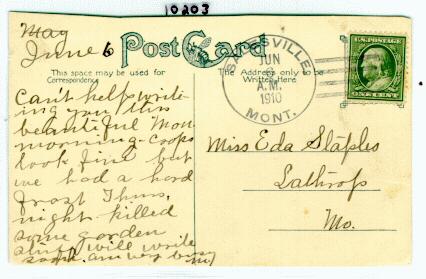 10203
May
June 6
Post Card
This space may be used for
Correspondence
The Address only to be
Written Here
SALESVILLE
JUN
6
A.M.
1910
MONT.
U.S. POSTAGE
ONE CENT
Can't help write
ing you this
beautiful Mon
morning. Crops
look fine but
we had a hard
frost Thurs.
night killed
some garden
stuff will write
soon. am very busy
Miss Eda Staples
Lathrop
Mo.